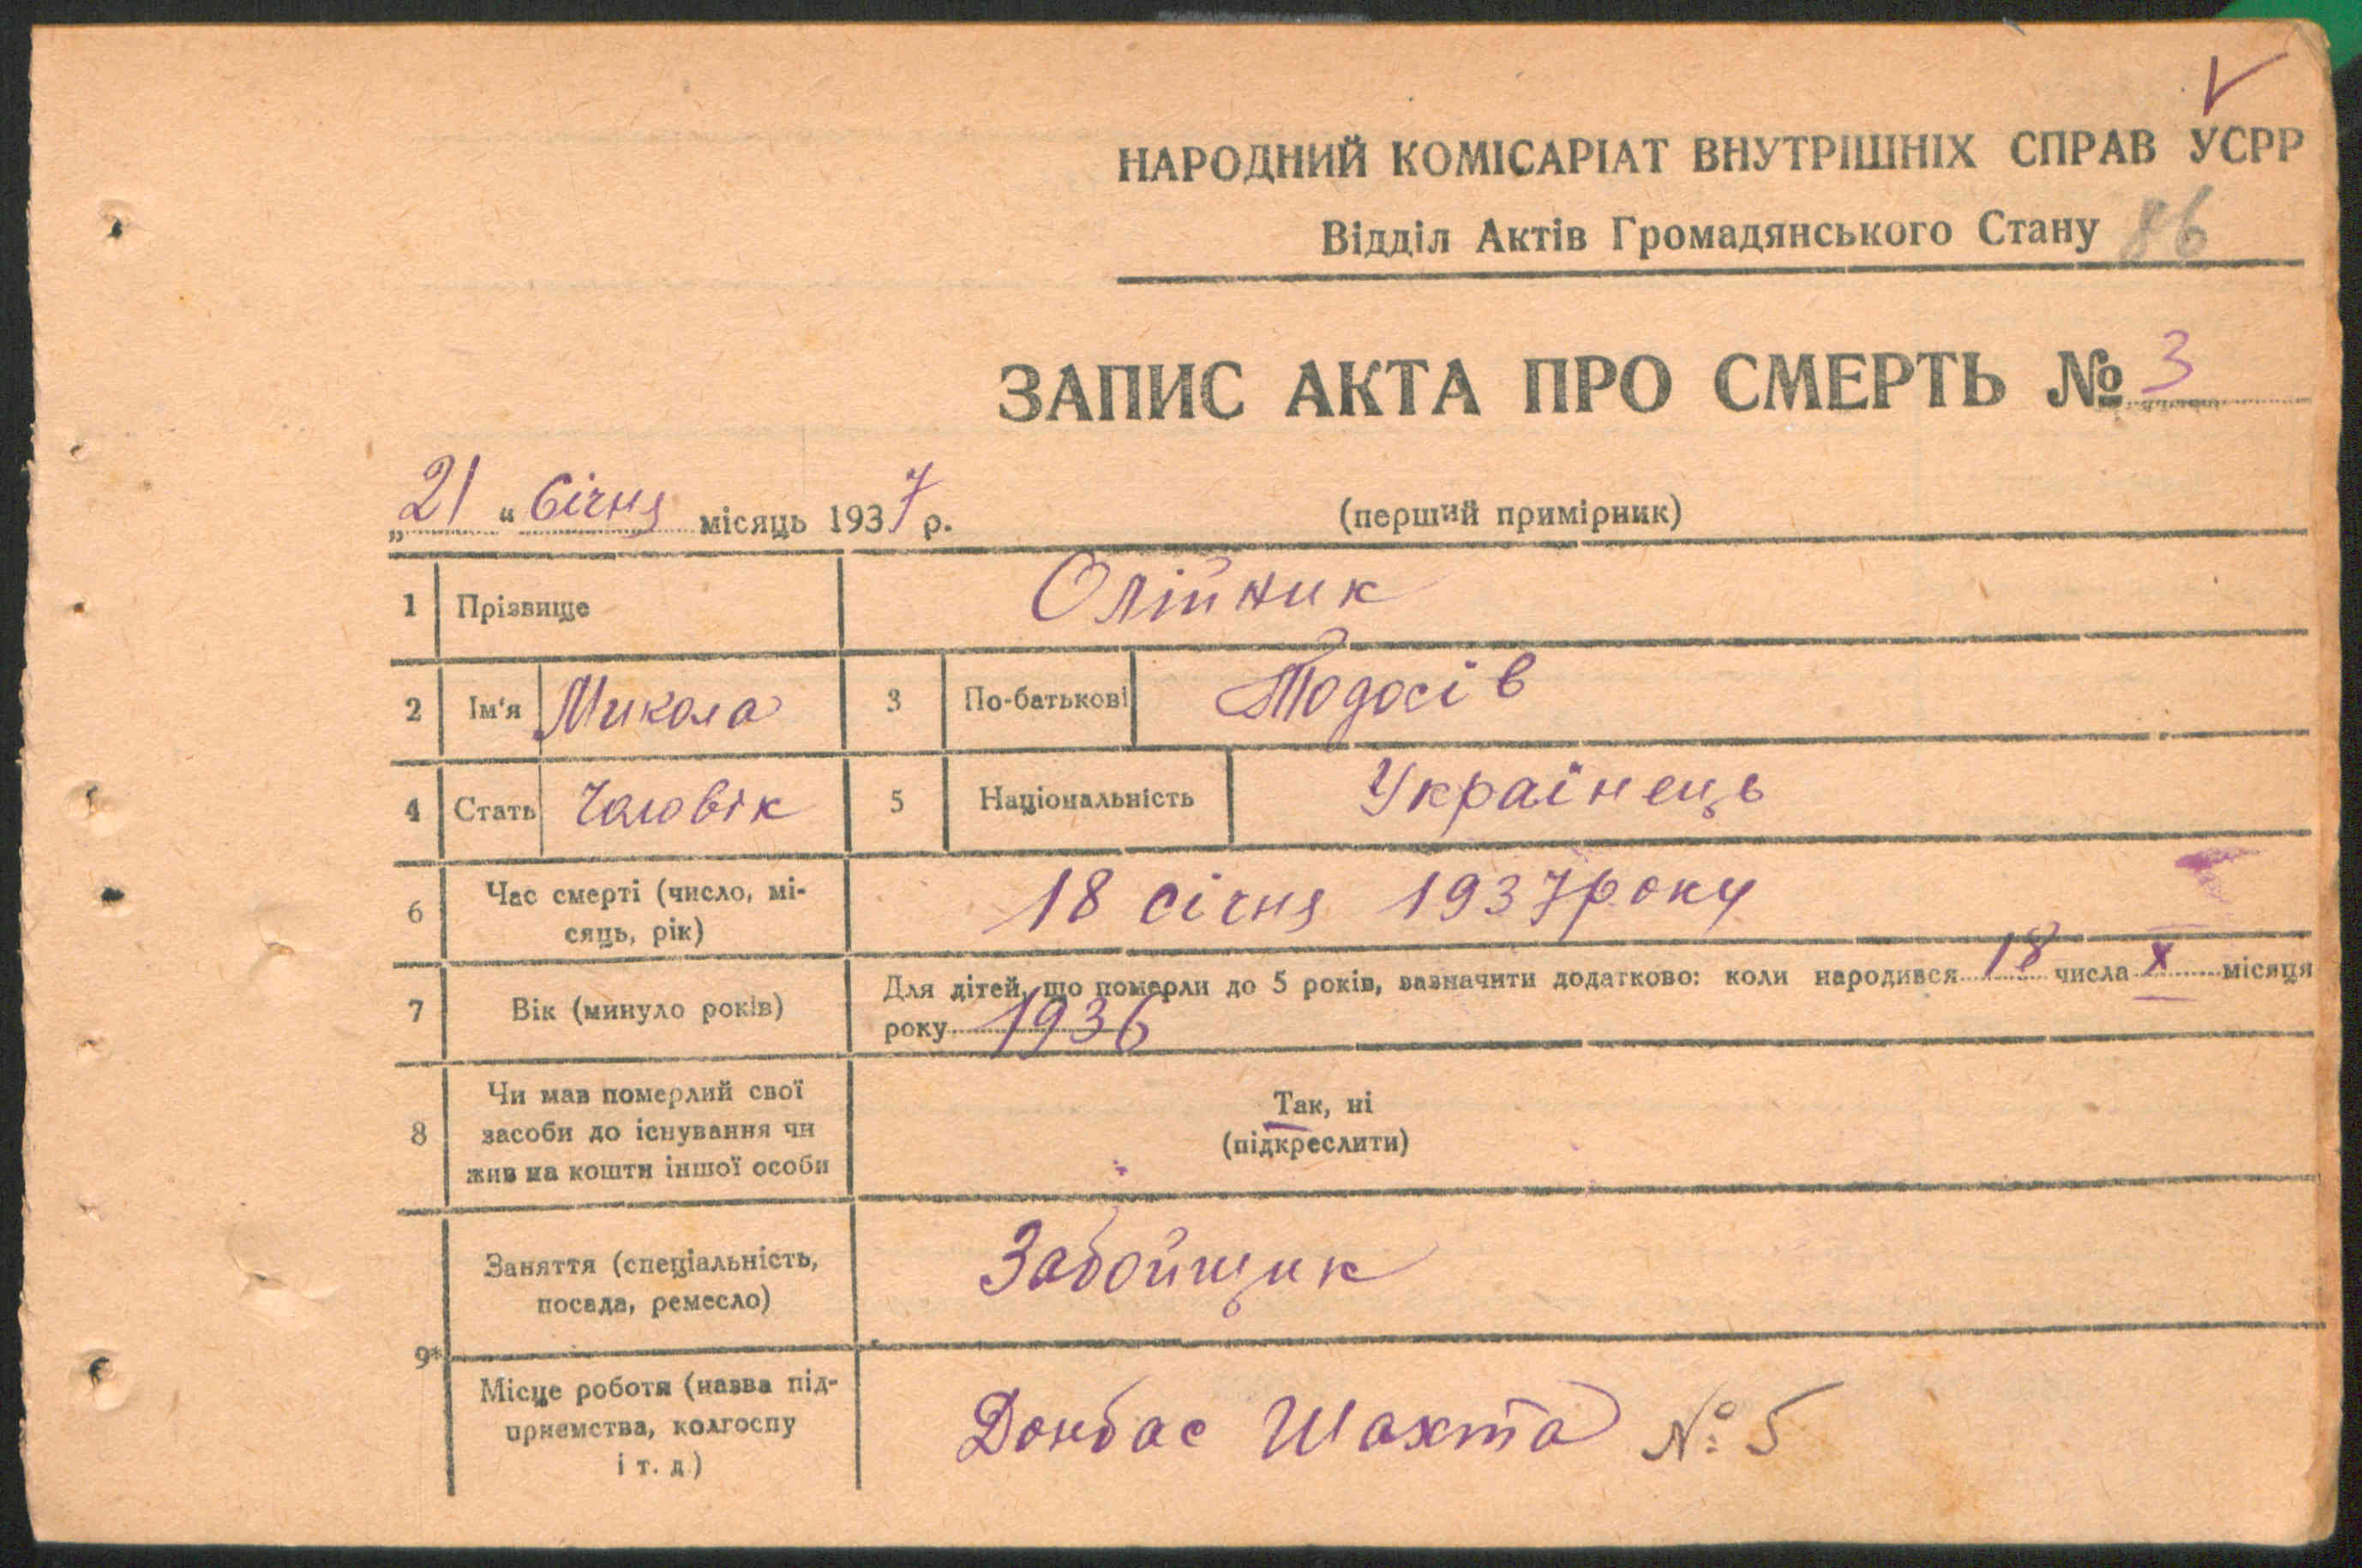 НАРОДНИЙ КОМІСАРІАТ ВНУТРІШНІХ СПРАВ УСРР
Відділ Актів Громадянського Стану 86
ЗАПИС АКТА ПРО СМЕРТЬ № 3
„21“ Січня місяць 1937 р. (перший примірник)
1 Прізвище Олійник
2 Ім'я Микола 3 По-батькові Тодосів
4 Стать Чоловік 5 Національність Українець
6 Час смерті (число, мі-
сяць, рік) 18 січня 1937 року
7 Вік (минуло років) Для дітей, що померли до 5 років, зазначити додатково: коли народився 18 числа X місяця
року 1936
8 Чи мав померлий свої
засоби до існування чи
жив на кошти іншої особи
Так, ні
(підкреслити)
9*
Заняття (спеціальність,
посада, ремесло) Забойщик
Місце роботи (назва під-
приємства, колгоспу
і т. д) Донбас Шахта № 5